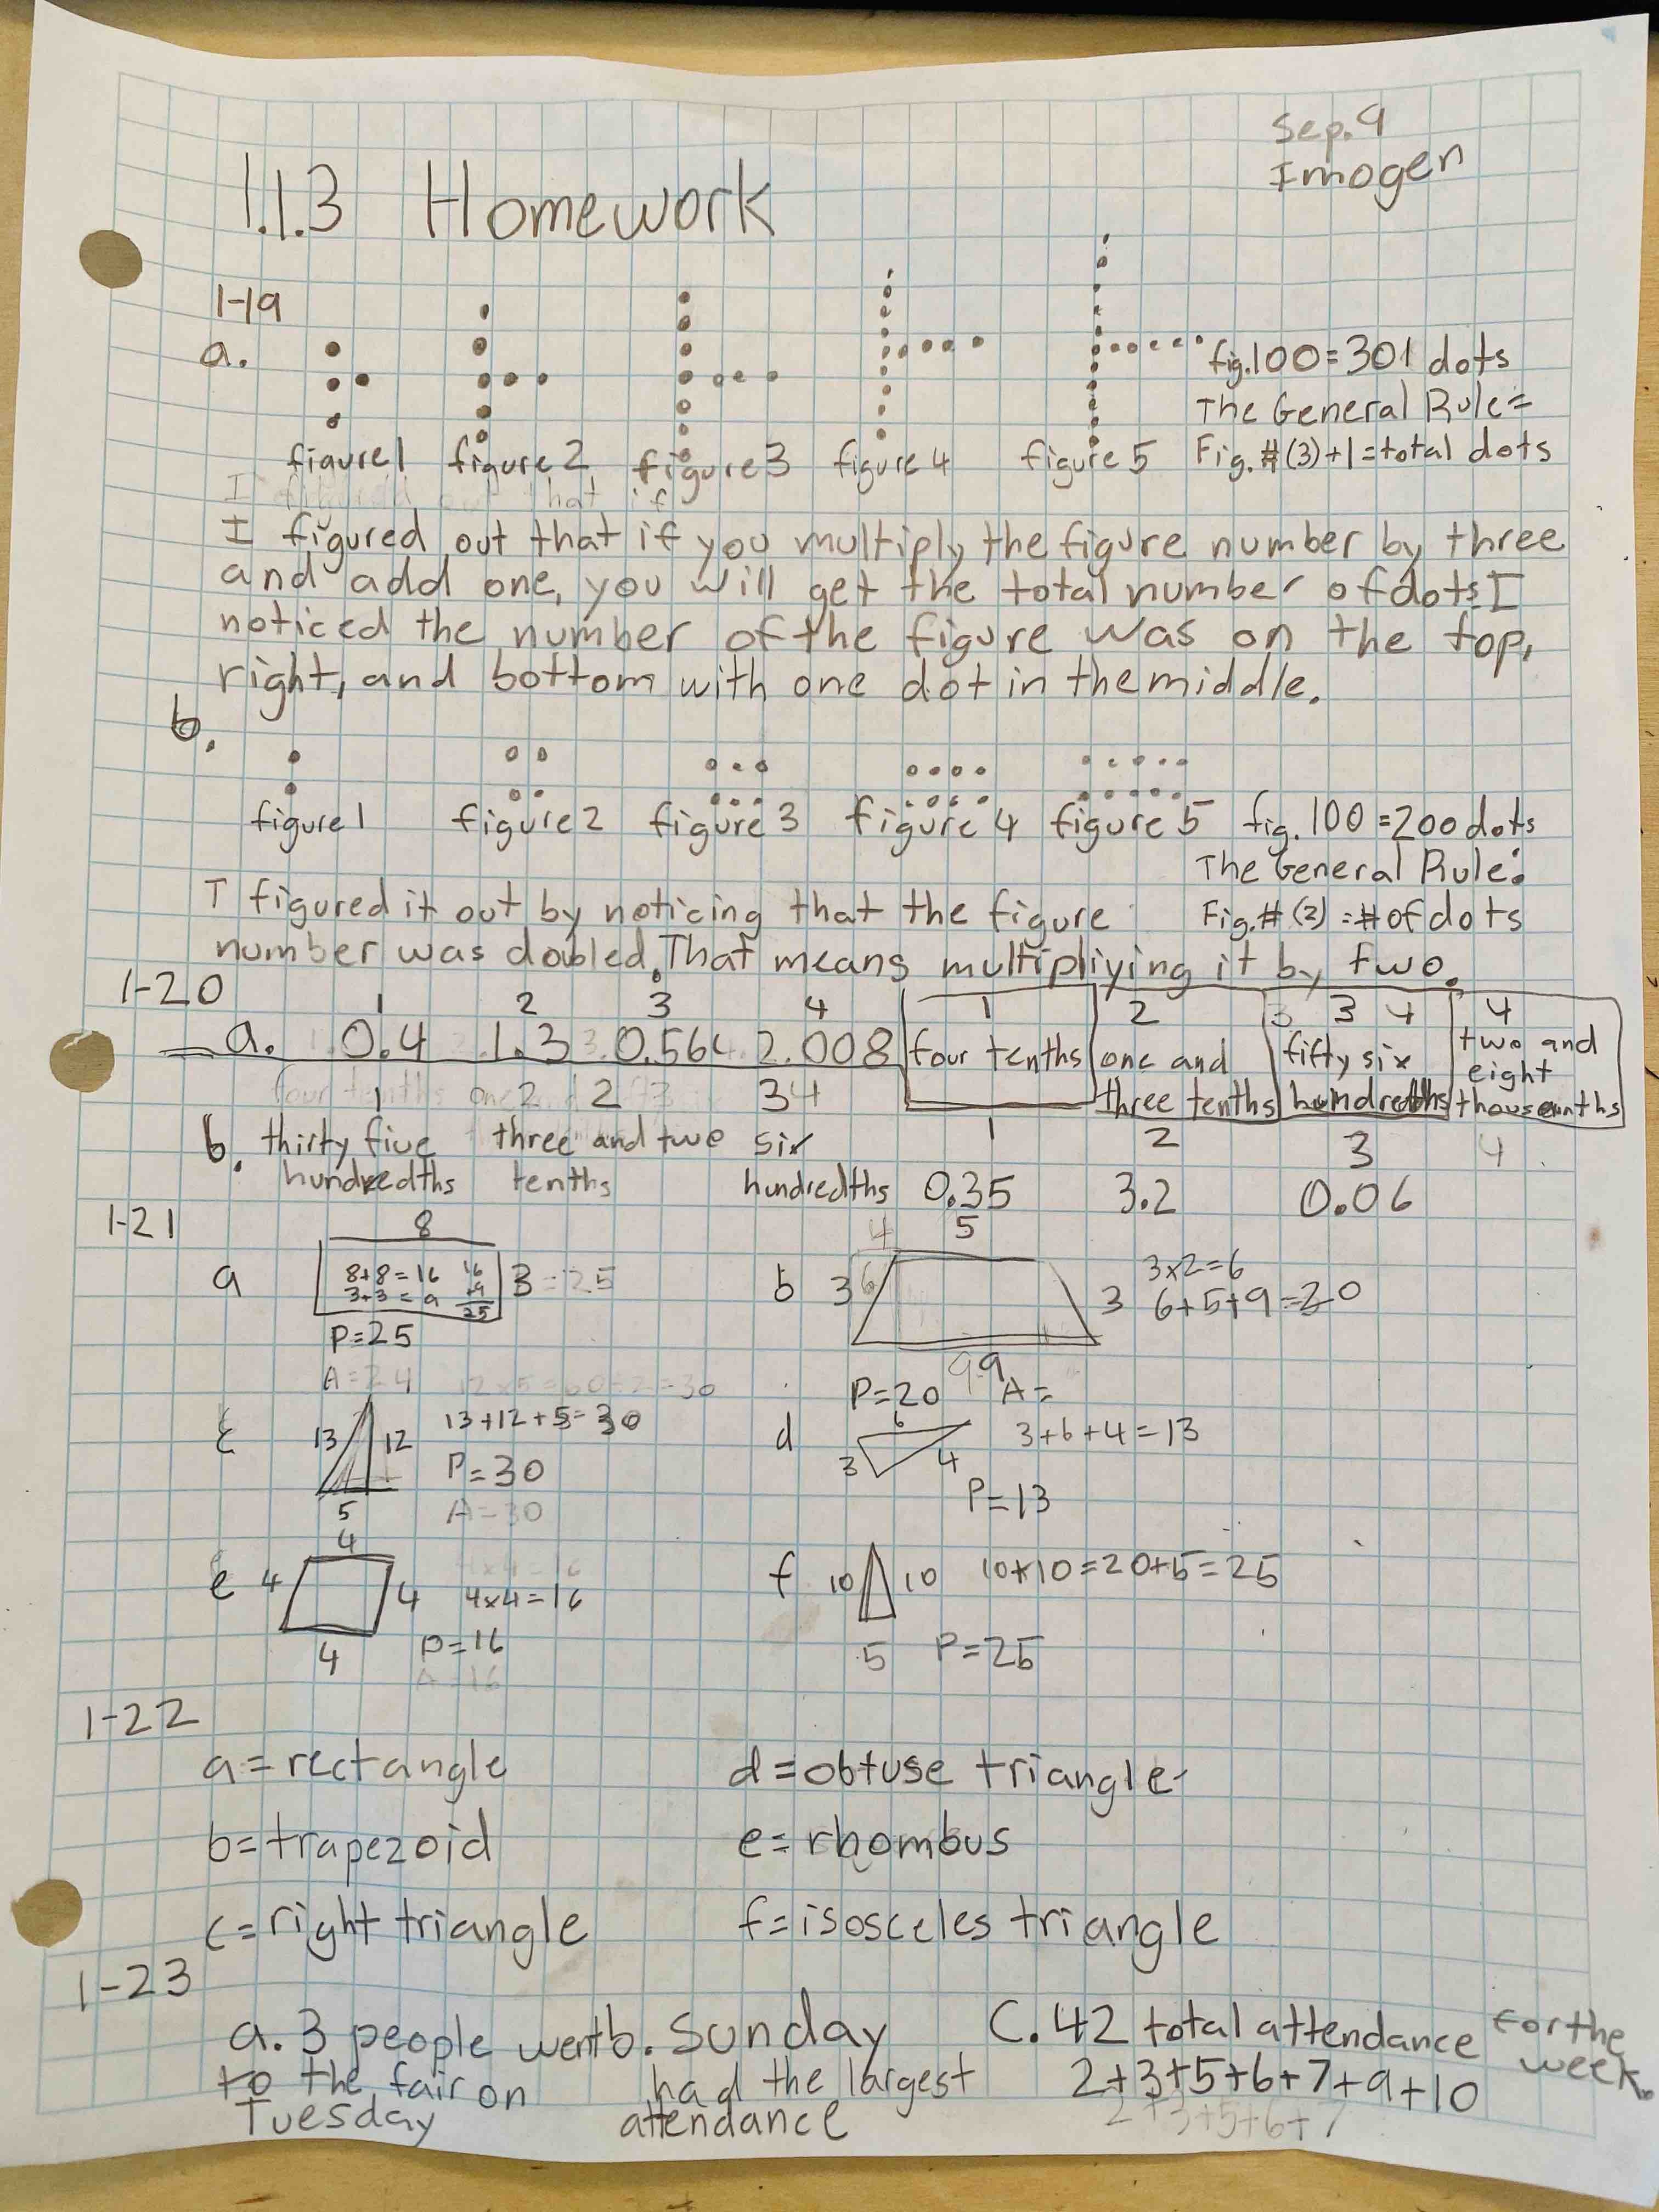 Sep. 9
Imogen
1.1.3 Homework
1-19
a.
fig.100=301 dots
The General Rule=
figure1 figure 2 figure 3 figure 4 figure 5 Fig.#(3)+1=total dots
I figured out that if
I figured out that if you multiply the figure number by three
and add one, you will get the total number of dots. I
noticed the number of the figure was on the top,
right, and bottom with one dot in the middle.
b.
figure1 figure2 figure 3 figure 4 figure 5 fig. 100=200 dots
The General Rule:
I figured it out by noticing that the figure Fig.#(2)=#of dots
number was doubled. That means multipliying it by two.
1-20
1 2 3 4 1 2 3 4 4
a. 0.4 1.3 0.564 2.008 four tenths one and fifty six two and
eight
three tenths hundredths thousanths
1 2 2 3 34 1 2 3 4
b. thirty five three and two six
hundredths tenths hundredths 0.35 3.2 0.06
1-21
a 8
8+8=16 16
3+3=9 +9
25
3 =25
P=25
A=24
b 4 5
3 6 3 3x2=6
6+5+9=20
9 9
P=20 A=
12x5=60÷2=30
c 13 12 13+12+5=30
P=30
5 A=30
d 6 3+6+4=13
3 4
P=13
e 4
4 4 4x4=16
4x4=16
4 P=16
A=16
f 10 10 10x10=20+5=25
5 P=25
1-22
a=rectangle d=obtuse triangle
b=trapezoid e=rhombus
c=right triangle f=isosceles triangle
1-23
a. 3 people went b. Sunday C. 42 total attendance for the
week.
to the fair on had the largest 2+3+5+6+7+9+10
Tuesday attendance 2+3+5+6+7